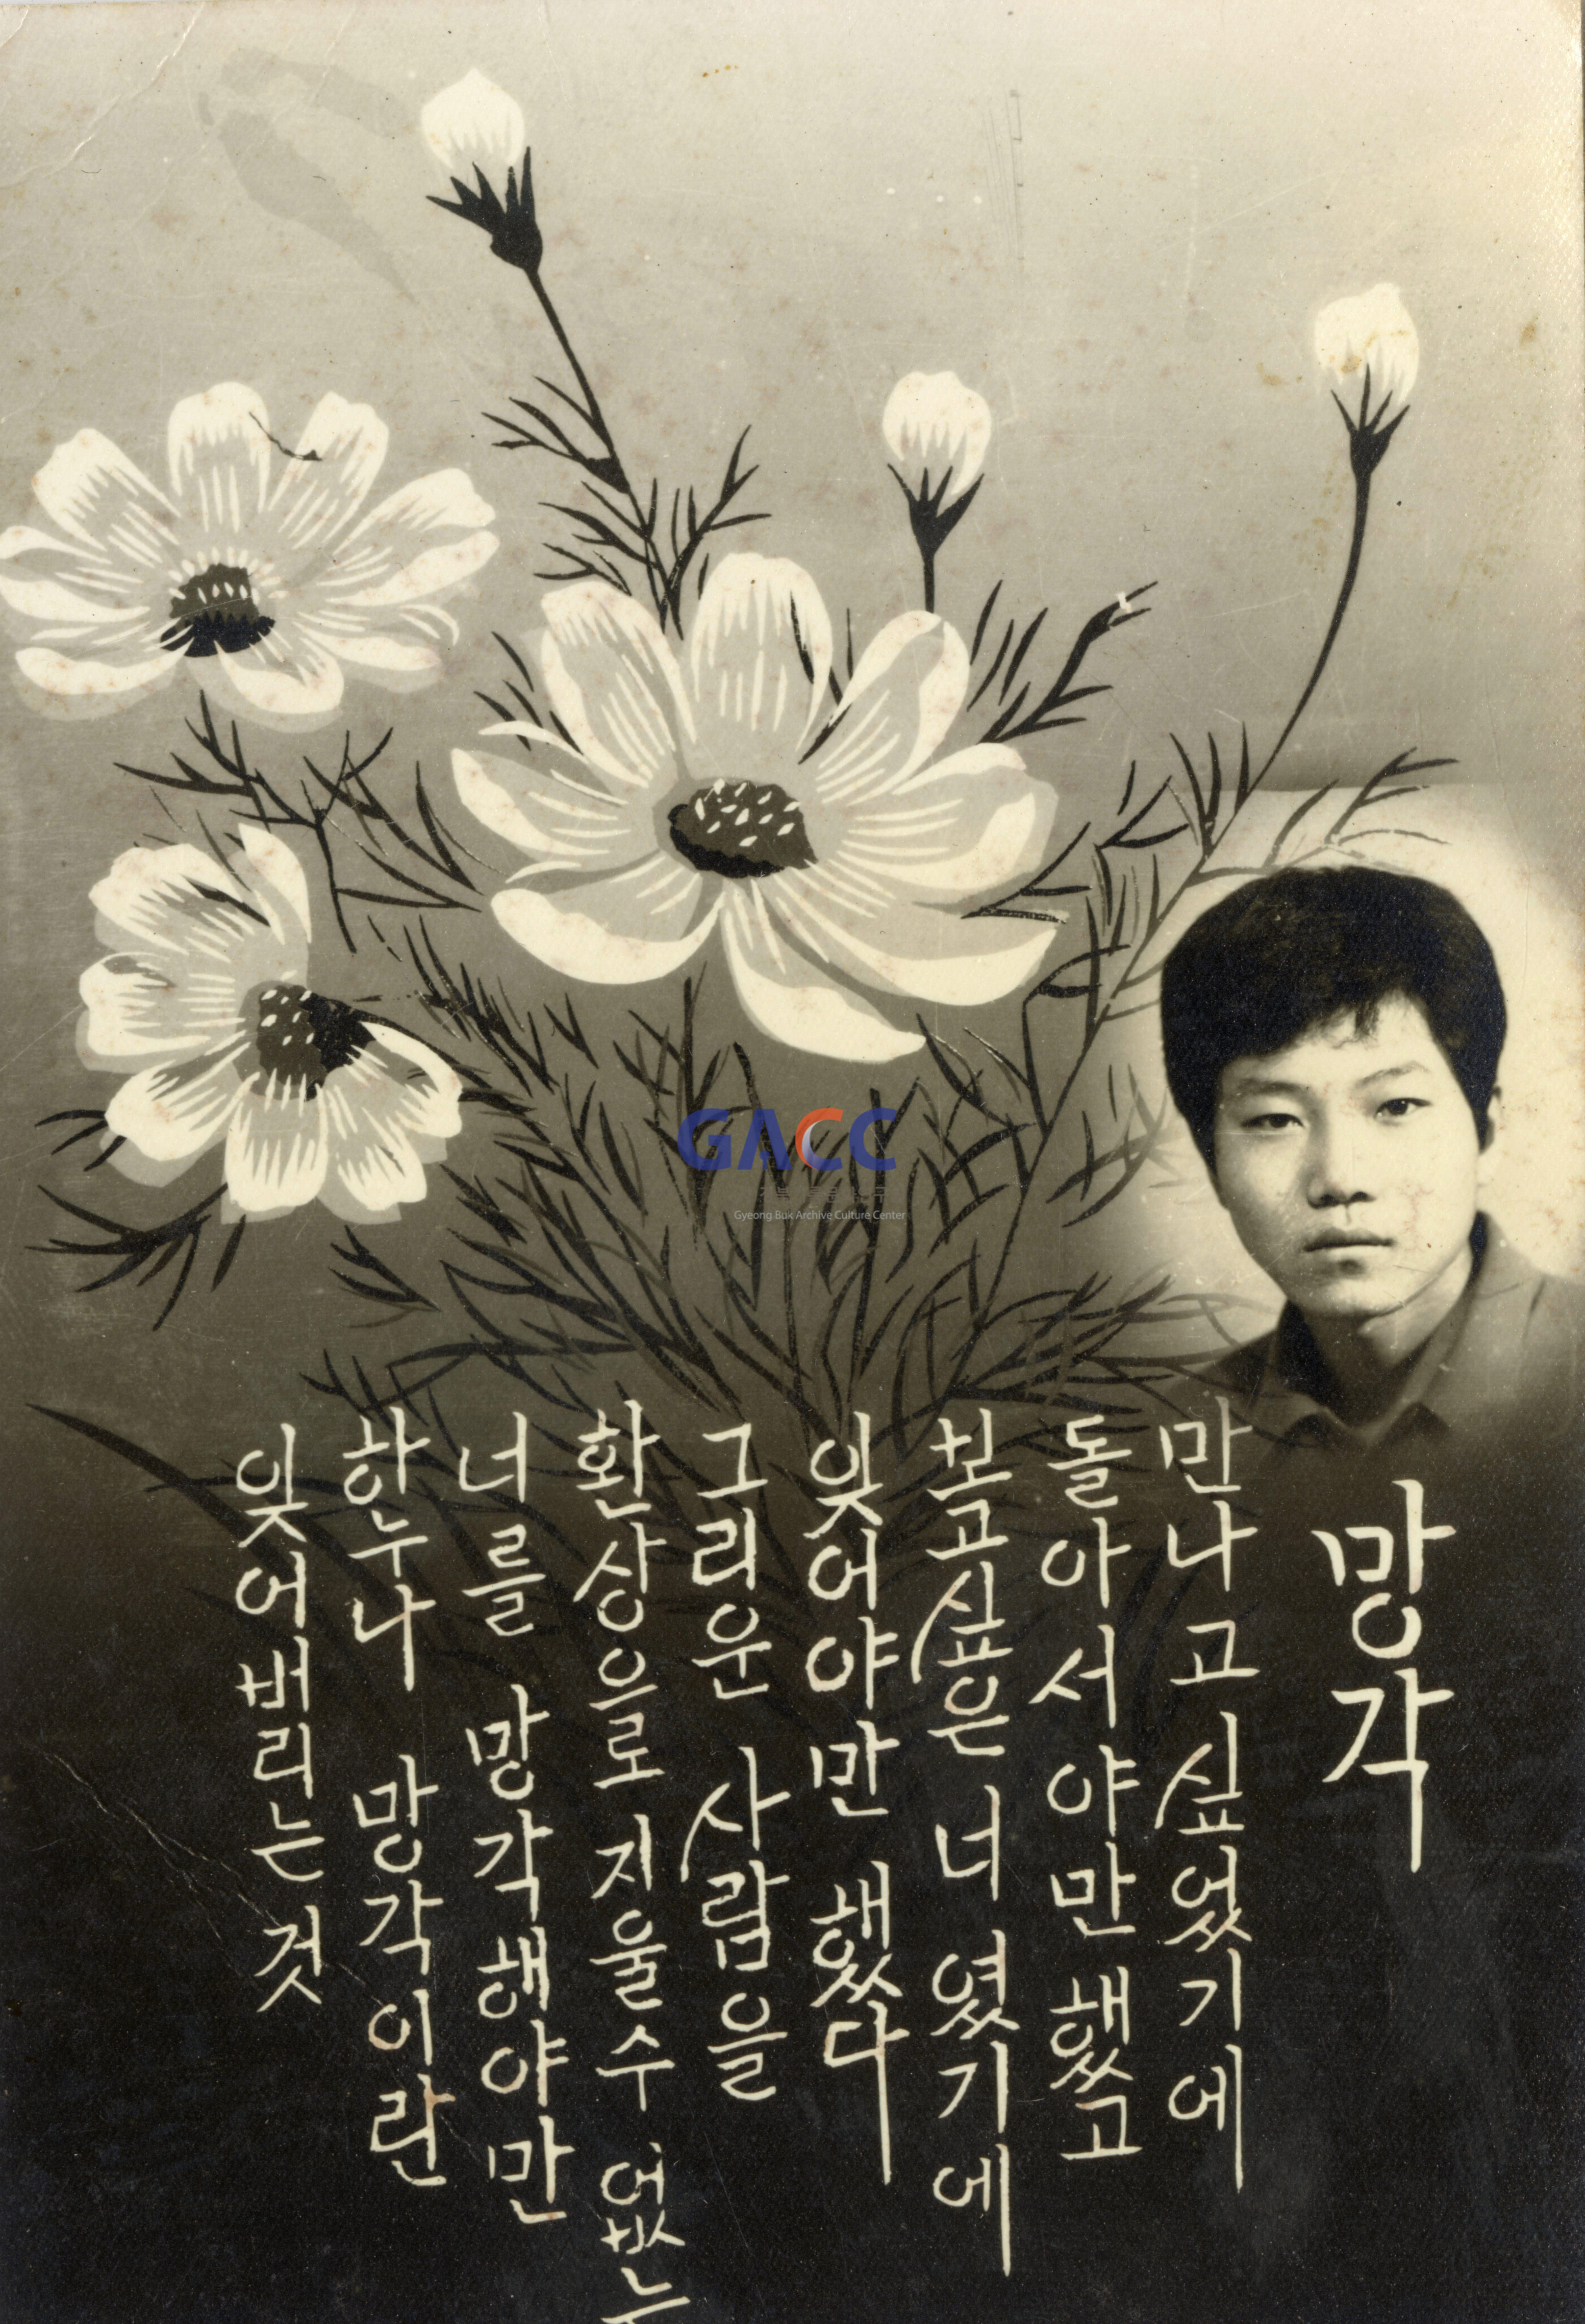 망각
만나고 싶었기에
돌아서야만 했고
보고싶은 너였기에
잊어야만 했다
그리운 사람을
환상으로 지울수 없는
너를 망각해야만
하누나 망각이란
잊어버리는 것
GACC
Gyeong Buk Archive Culture Center